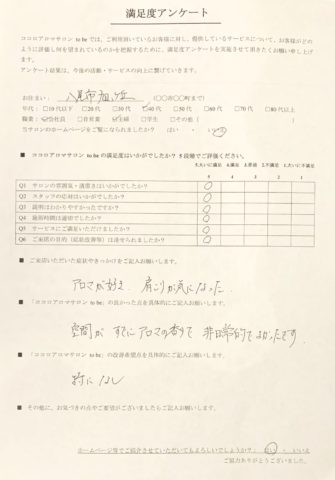 満足度アンケート
ココロアロマサロン to beでは、ご利用頂いているお客様に対し、提供しているサービスについて、お客様がどの
ように評価し何を望まれているのかを把握するために、満足度アンケートを実施させて頂きたくお願い申し上げ
ます。
アンケート結果は、今後の活動・サービスの向上に繋げていきます。
お住まい： 八尾市 (〇〇市〇〇町まで)
年代：□10代以下 □20代 □30代 □40代 □50代 □60代 □70代 □80代以上
職業：□会社員 □自営業 □主婦 □学生 □その他（ ）
当サロンのホームページをご覧になられましたか？ はい ・ いいえ
■ ココロアロマサロン to be の満足度はいかがでしたか？ 5段階でご評価ください。
5.大いに満足 4.満足 3.普通 2.不満足 1.大いに不満足
Q1 サロンの雰囲気・清潔さはいかがでしたか？ 〇
Q2 スタッフの応対はいかがでしたか？ 〇
Q3 説明はわかりやすかったですか？ 〇
Q4 施術時間は適切でしたか？ 〇
Q5 サービスにご満足いただけましたか？ 〇
Q6 ご来店の目的（症状改善等）は達せられましたか？ 〇
■ ご来店いただいた症状やきっかけをご記入お願いします。
アロマが好き。肩こりが気になった。
■ 「ココロアロマサロン to be」の良かった点を具体的にご記入お願いします。
空間が すでにアロマの香りで 非日常的でよかったです。
■ 「ココロアロマサロン to be」の改善希望点を具体的にご記入お願いします。
特になし
■ その他に、お気づきの点やご要望がございましたらご記入お願いします。
ホームページ等でご紹介させていただいてもよろしいでしょうか？： はい ・ いいえ
ご協力ありがとうございました。